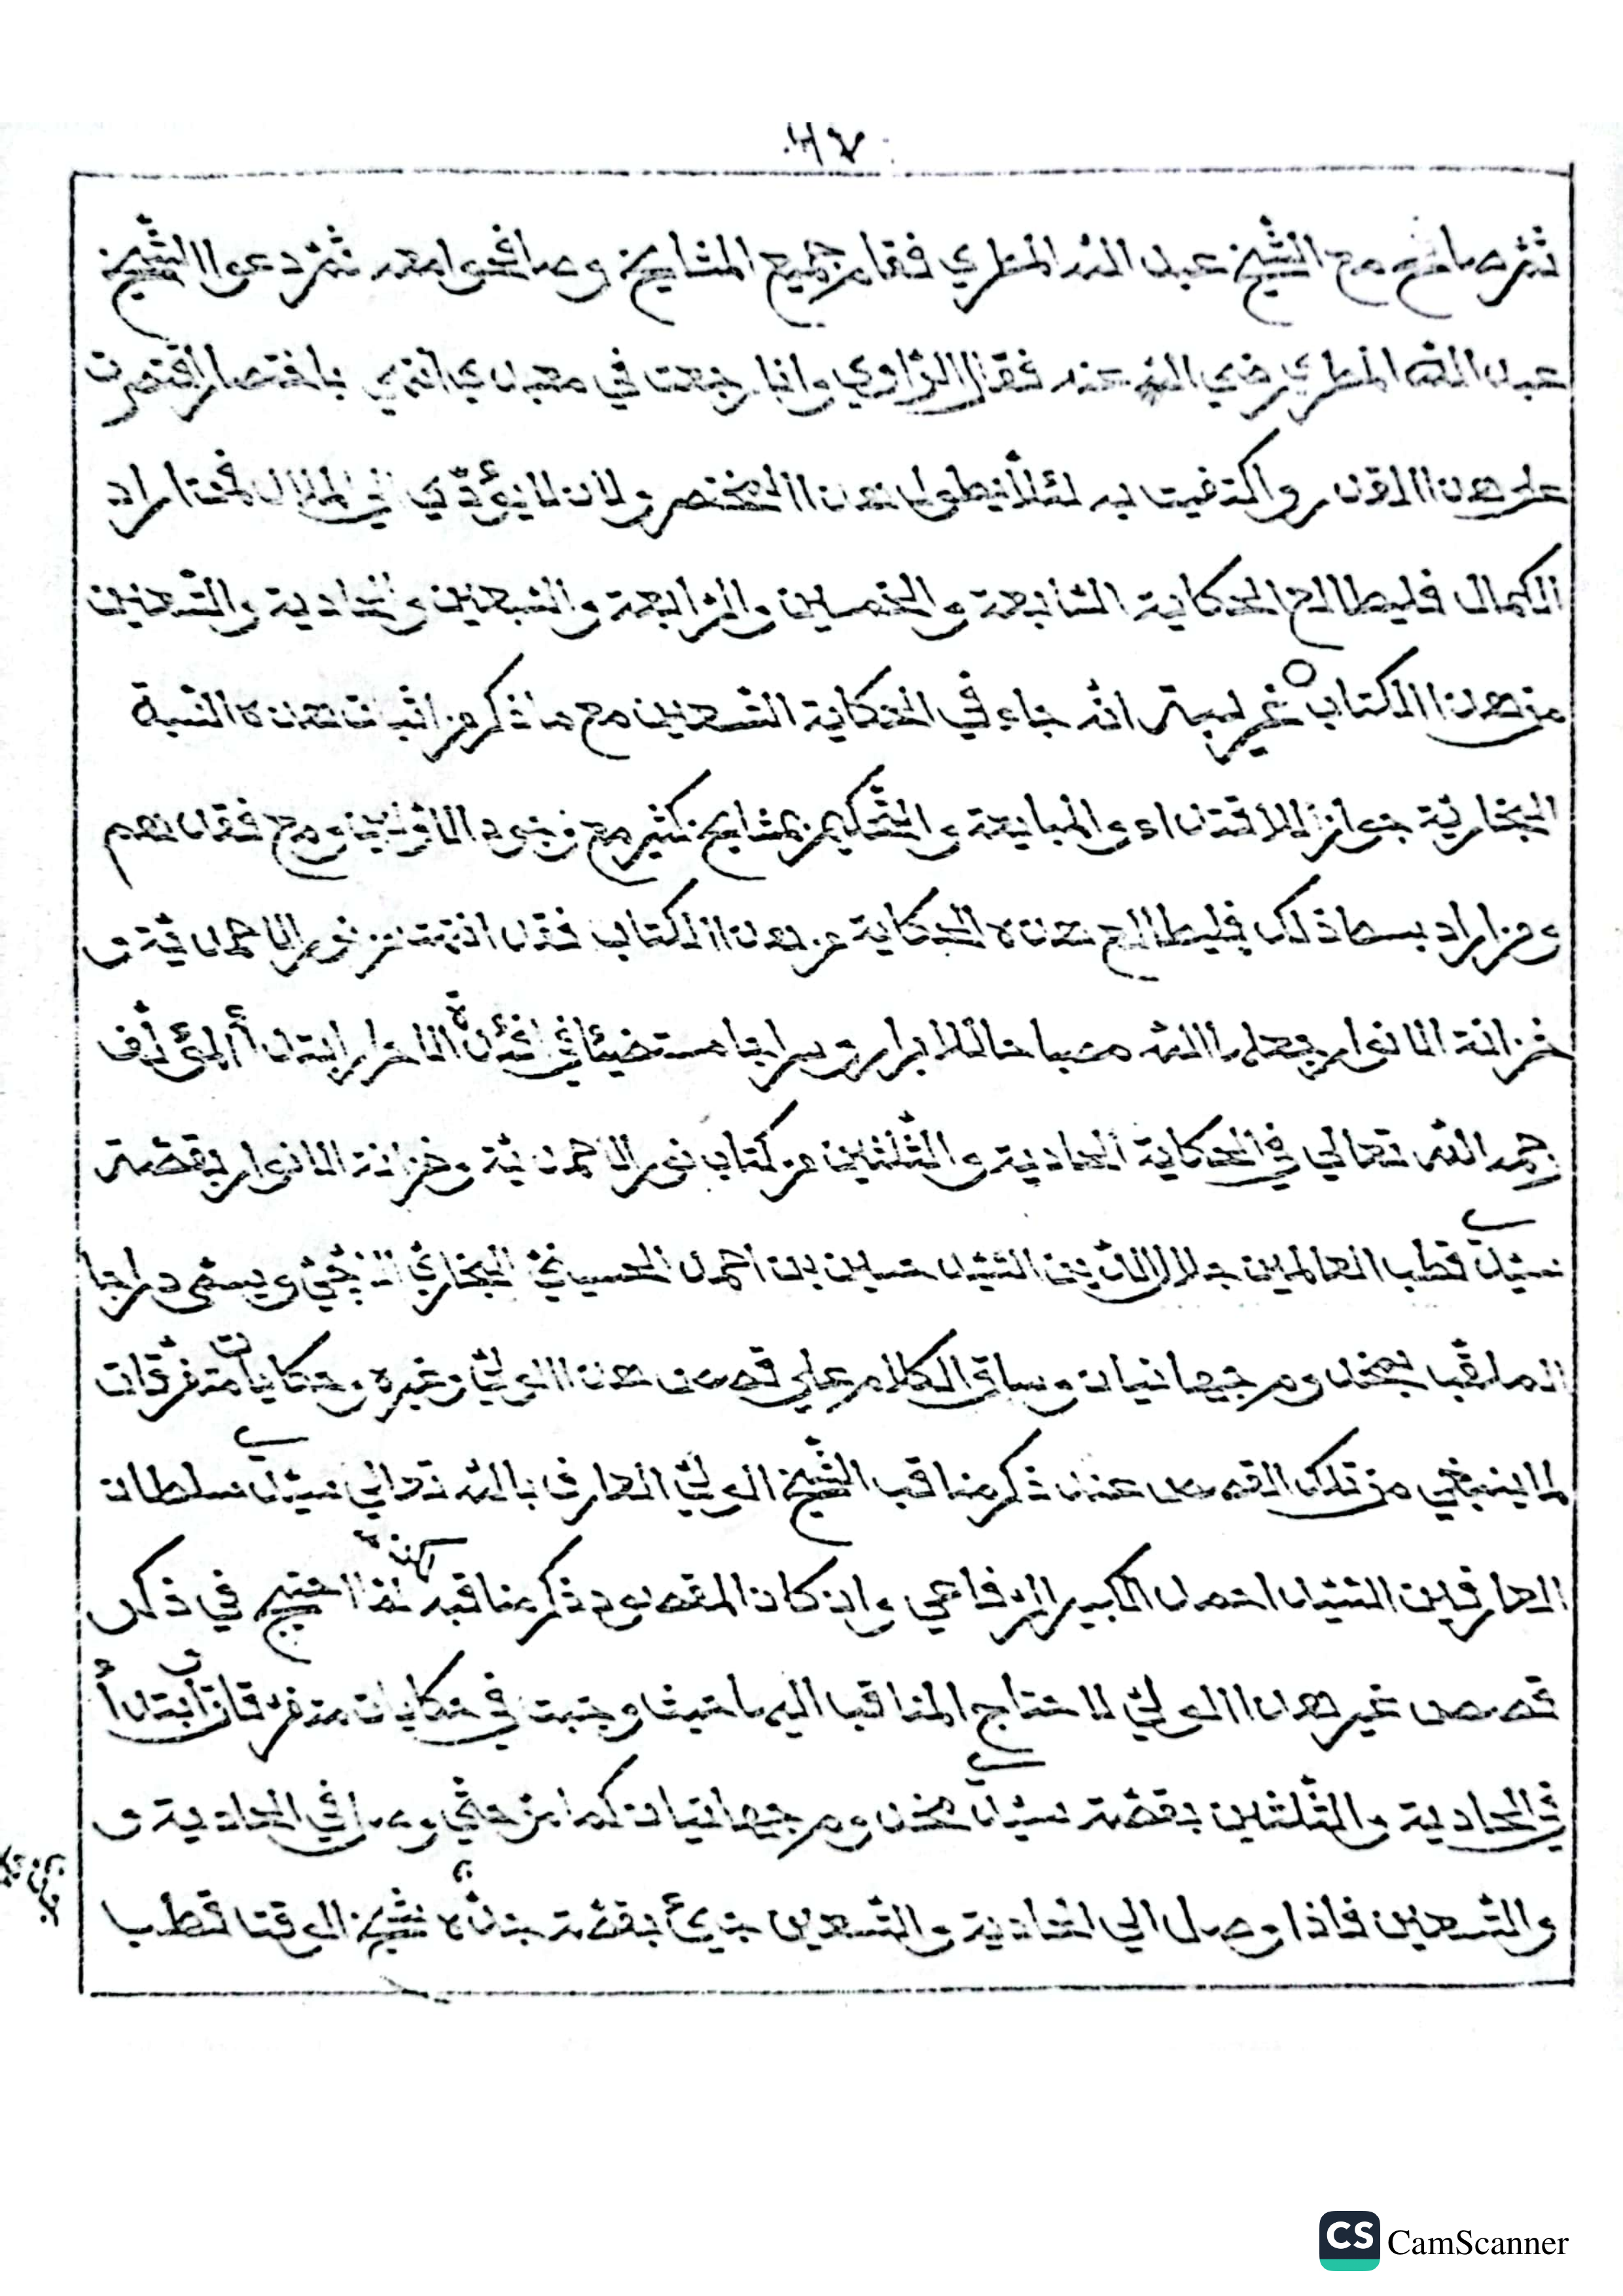 ٤٧
ثم صافح مع الشيخ عبد الله المطري فقام جميع المشايخ وصافحوا معه ثم دعوا الشيخ
عبد الله المطري رضي الله عنه فقال الراوي وانا رجعت في معبدي انتهي باختصار اقتصرت
علي هذا القدر واكتفيت به لئلا يطول هذا المختصر ولان لا يؤدّي الي الملال فمن اراد
الكمال فليطالع الحكاية السابعة والخمسين والرابعة والسبعين والحادية والتسعين
من هذا الكتاب غريبة انه جاء في الحكاية التسعين مع ما ذكر من اثبات هذه النسبة
البخارية جواز الاقتداء والمبايعة والتحكيم بمشايخ كثير مع وجود الاولين ومع فقدانهم
ومن اراد بسط ذلك فليطالع هذه الحكاية من هذا الكتاب فقد انتهت من نور الاحمدية و
خزانة الانوار جعلها الله مصباحا للابرار وسراجا مستضيئا في افئدة الاحرار ابتدأ المؤلف
رحمه الله تعالي في الحكاية الحادية والثلثين من كتاب نور الاحمدية وخزانة الانوار بقصة
سيدي قطب العالمين جلال الدين السيد حسين بن احمد الحسيني البخاري ويسمى دراجا
الملقب بمخدوم جهانيان وساق الكلام علي قصص هذا الولي وغيره وحكايات متفرقات
لما ينبغي من تلك القصص عند ذكر مناقب الشيخ الولي العارف بالله تعالي سيدي سلطان
العارفين السيد احمد الكبير الرفاعي وان كان المقصود ذكر مناقبه لكنه لما احتيج في ذكر
قصص غير هذا الولي لاحتاج المناقب اليها حيث وجبت في حكايات متفرقات ابتدأ
في الحادية والثلثين بقصة سيدي مخدوم جهانيان كما وصل في الحادية و
والتسعين فاذا وصل الي الحادية والتسعين جيئ بقصة جده شيخ الوقت قطب
CS CamScanner